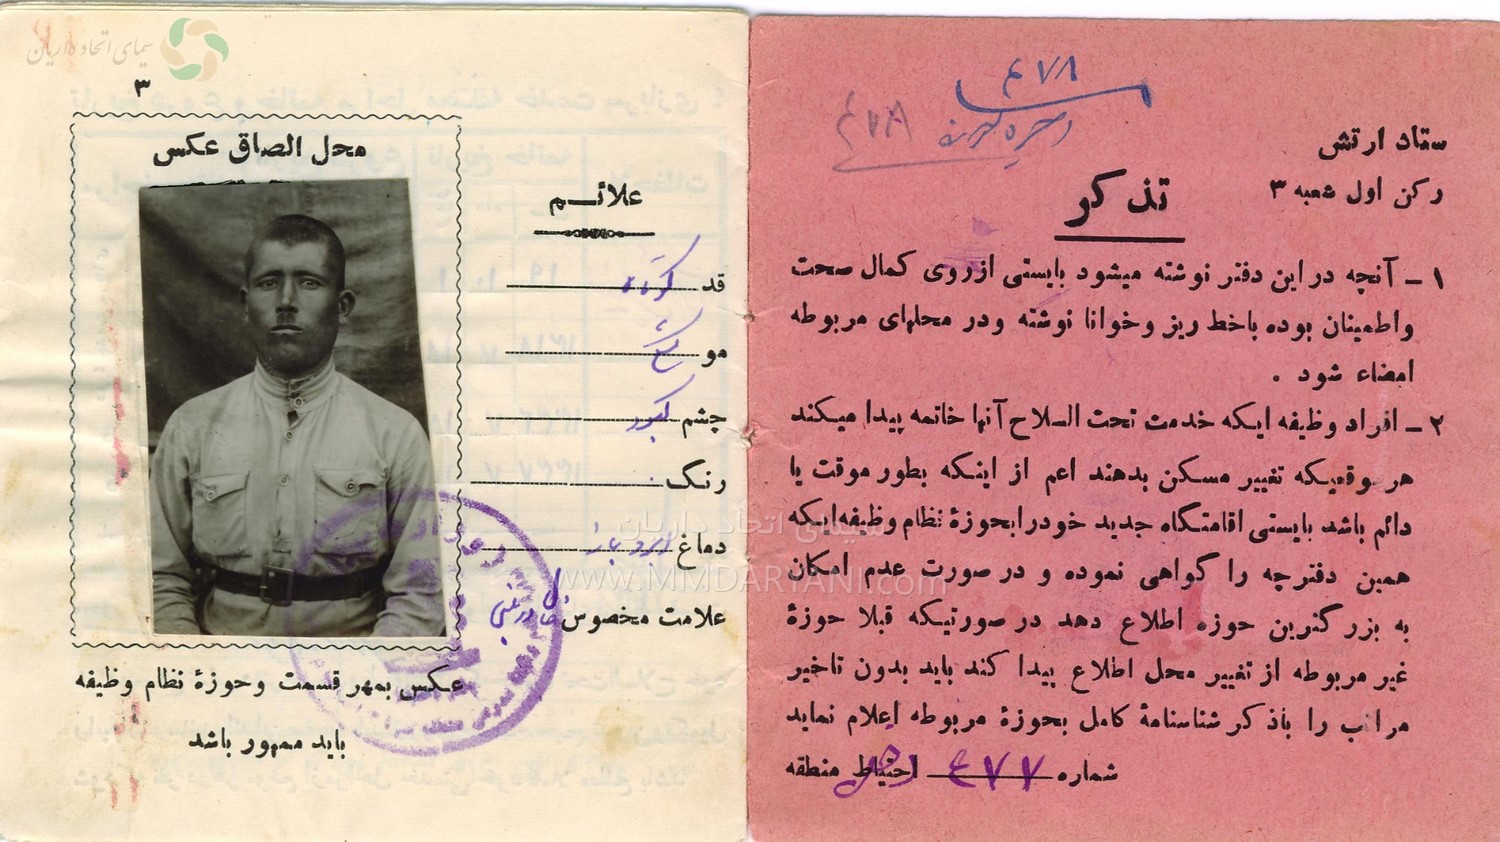 ستاد ارتش
رکن اول شعبه ۳
۴۷۸
۴۷۸
تذکر
۱ ـ آنچه در این دفتر نوشته میشود بایستی از روی کمال صحت
واطمینان بوده باخط ریز و خوانا نوشته ودر محلهای مربوطه
امضاء شود .
۲ ـ افراد وظیفه ایکه خدمت تحت السلاح آنها خاتمه پیدا میکند
هر موقعیکه تغییر مسکن بدهند اعم از اینکه بطور موقت یا
دائم باشد بایستی اقامتگاه جدید خودرا بحوزهٔ نظام وظیفه ایکه
همین دفترچه را گواهی نموده و در صورت عدم امکان
به بزرگترین حوزه اطلاع دهد در صورتیکه قبلا حوزهٔ
غیر مربوطه از تغییر محل اطلاع پیدا کند باید بدون تاخیر
مراتب را باذکر شناسنامهٔ کامل بحوزهٔ مربوطه اعلام نماید
شماره ۴۷۷ احتیاط منطقه
۳
محل الصاق عکس
علائم
قد کوتاه
مو
چشم کبود
رنگ
دماغ
علامت مخصوص
عکس بمهر قسمت و حوزهٔ نظام وظیفه
باید ممهور باشد
سیمای اتحاد داریان
سیمای اتحاد داریان
www.MMDARYANI.com